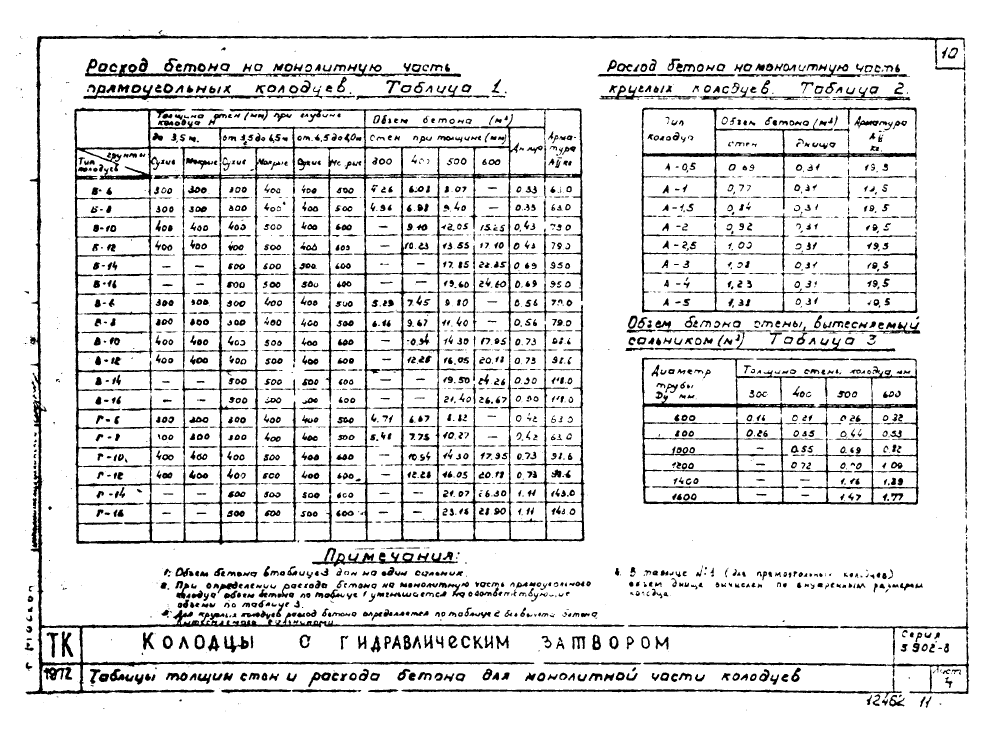 10
Расход бетона на монолитную часть
прямоугольных колодцев. Таблица 1.
Толщина стен (мм) при глубине колодца H
Объем бетона (м³)
до 3,5 м. от 3,5 до 4,5м от 4,5 до 6,0м стен при толщине (мм) Днища Арматура АII кг
Тип колодцев грунты Сухие Мокрые Сухие Мокрые Сухие Мокрые 300 400 500 600
Б-6 300 300 300 400 400 500 6.03 8.07 — 0.33 63.0
Б-8 300 300 300 400 400 500 4.96 6.98 9.40 — 0.33 63.0
Б-10 400 400 400 500 400 600 — 9.10 12.05 15.25 0,43 79.0
Б-12 400 400 400 500 400 600 — 10.23 13.55 17.10 0.43 79.0
Б-14 — — 500 500 500 600 — — 17.85 22.35 0.69 95.0
Б-16 — — 500 500 500 600 — — 19.60 24.60 0.69 95.0
В-6 300 300 300 400 400 500 5.29 7.45 9.80 — 0.56 79.0
В-8 300 300 300 400 400 500 6.16 9.67 11.40 — 0.56 79.0
В-10 400 400 400 500 400 600 — 10.94 14.30 17.95 0.73 98.6
В-12 400 400 400 500 400 600 — 12.28 16.05 20.18 0.73 98.6
В-14 — — 500 500 500 600 — — 19.50 24.26 0.90 118.0
В-16 — — 500 500 500 600 — — 21.40 26.67 0.90 118.0
Г-6 300 300 300 400 400 500 4.71 6.67 8.82 — 0.42 63.0
Г-8 300 300 300 400 400 500 5.48 7.75 10.27 — 0.42 63.0
Г-10 400 400 400 500 400 600 — 10.94 14.30 17.95 0.73 98.6
Г-12 400 400 400 500 400 600 — 12.28 16.05 20.18 0.73 98.6
Г-14 — — 500 500 500 600 — — 21.07 26.30 1.11 143.0
Г-16 — — 500 500 500 600 — — 23.16 28.90 1.11 143.0
Расход бетона на монолитную часть
круглых колодцев. Таблица 2.
Тип колодца Объем бетона (м³) Арматура АII кг.
стен днища
А-0,5 0.69 0,31 19,5
А-1 0,77 0,31 19,5
А-1,5 0,84 0,31 19,5
А-2 0,92 0,31 19,5
А-2,5 1,00 0,31 19,5
А-3 1,08 0,31 19,5
А-4 1,23 0,31 19,5
А-5 1,38 0,31 19,5
Объем бетона стены, вытесняемый
сальником (м³) Таблица 3
Диаметр трубы Dу мм Толщина стены колодца мм
300 400 500 600
600 0.16 0.21 0.26 0.32
800 0.26 0.35 0.44 0.53
1000 — 0.55 0.69 0.82
1200 — 0.72 0.90 1.09
1400 — — 1.16 1.39
1600 — — 1.47 1.77
Примечания:
1. Объем бетона в таблице 3 дан на один сальник.
2. При определении расхода бетона на монолитную часть прямоугольного
колодца объем бетона по таблице 1 уменьшается на соответствующие
объемы по таблице 3.
3. Для круглых колодцев расход бетона определяется по таблице 2 без вычета бетона
вытесняемого сальниками.
4. В таблице №1 (для прямоугольных колодцев)
объем днища вычислен по внутренним размерам
колодца.
ТК КОЛОДЦЫ С ГИДРАВЛИЧЕСКИМ ЗАТВОРОМ Серия 3.902-8
1972 Таблицы толщин стен и расхода бетона для монолитной части колодцев Лист 4
12462 11